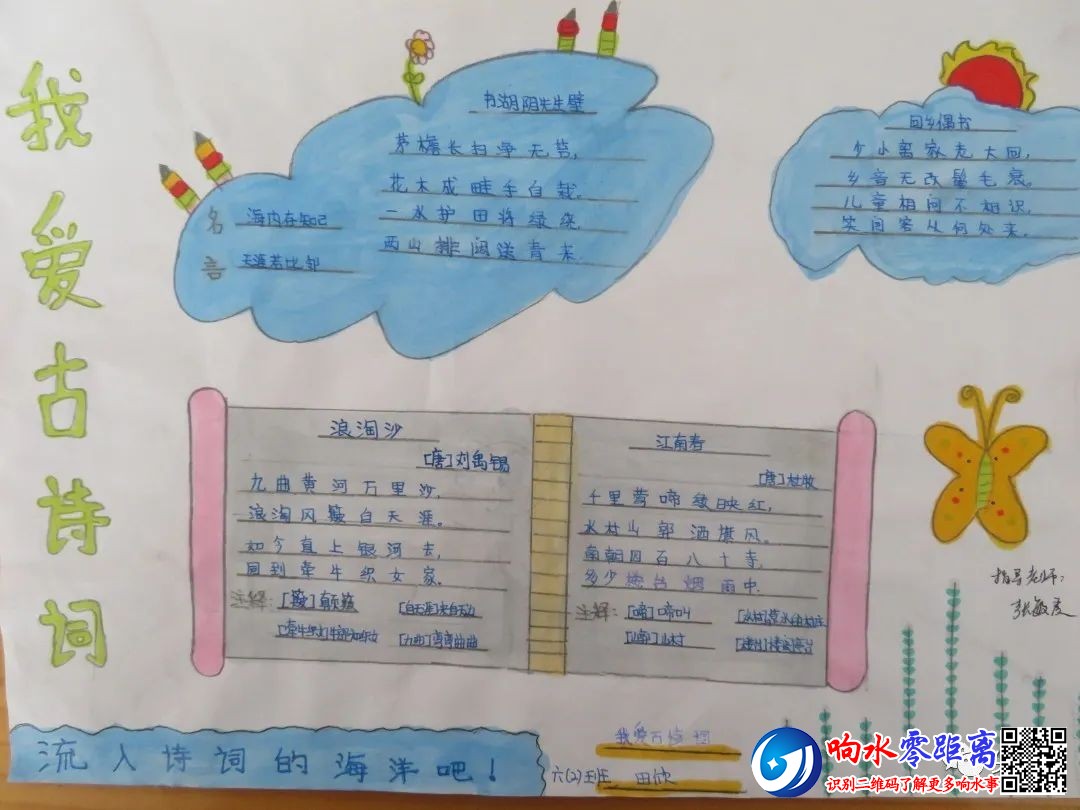 我爱古诗词
书湖阴先生壁
茅檐长扫净无苔,
花木成畦手自栽。
一水护田将绿绕,
两山排闼送青来.
名言
海内存知己
天涯若比邻
回乡偶书
少小离家老大回,
乡音无改鬓毛衰。
儿童相问不相识,
笑问客从何处来。
浪淘沙
[唐]刘禹锡
九曲黄河万里沙,
浪淘风簸自天涯。
如今直上银河去,
同到牵牛织女家。
注释:
[自天涯]来自天边
[九曲]弯弯曲曲
江南春
[唐]杜牧
千里莺啼绿映红,
水村山郭酒旗风。
南朝四百八十寺,
多少楼台烟雨中.
注释: [啼]啼叫
指导老师:
流入诗词的海洋吧!
我爱古诗词
六(2)班 田欣
响水零距离
识别二维码了解更多响水事